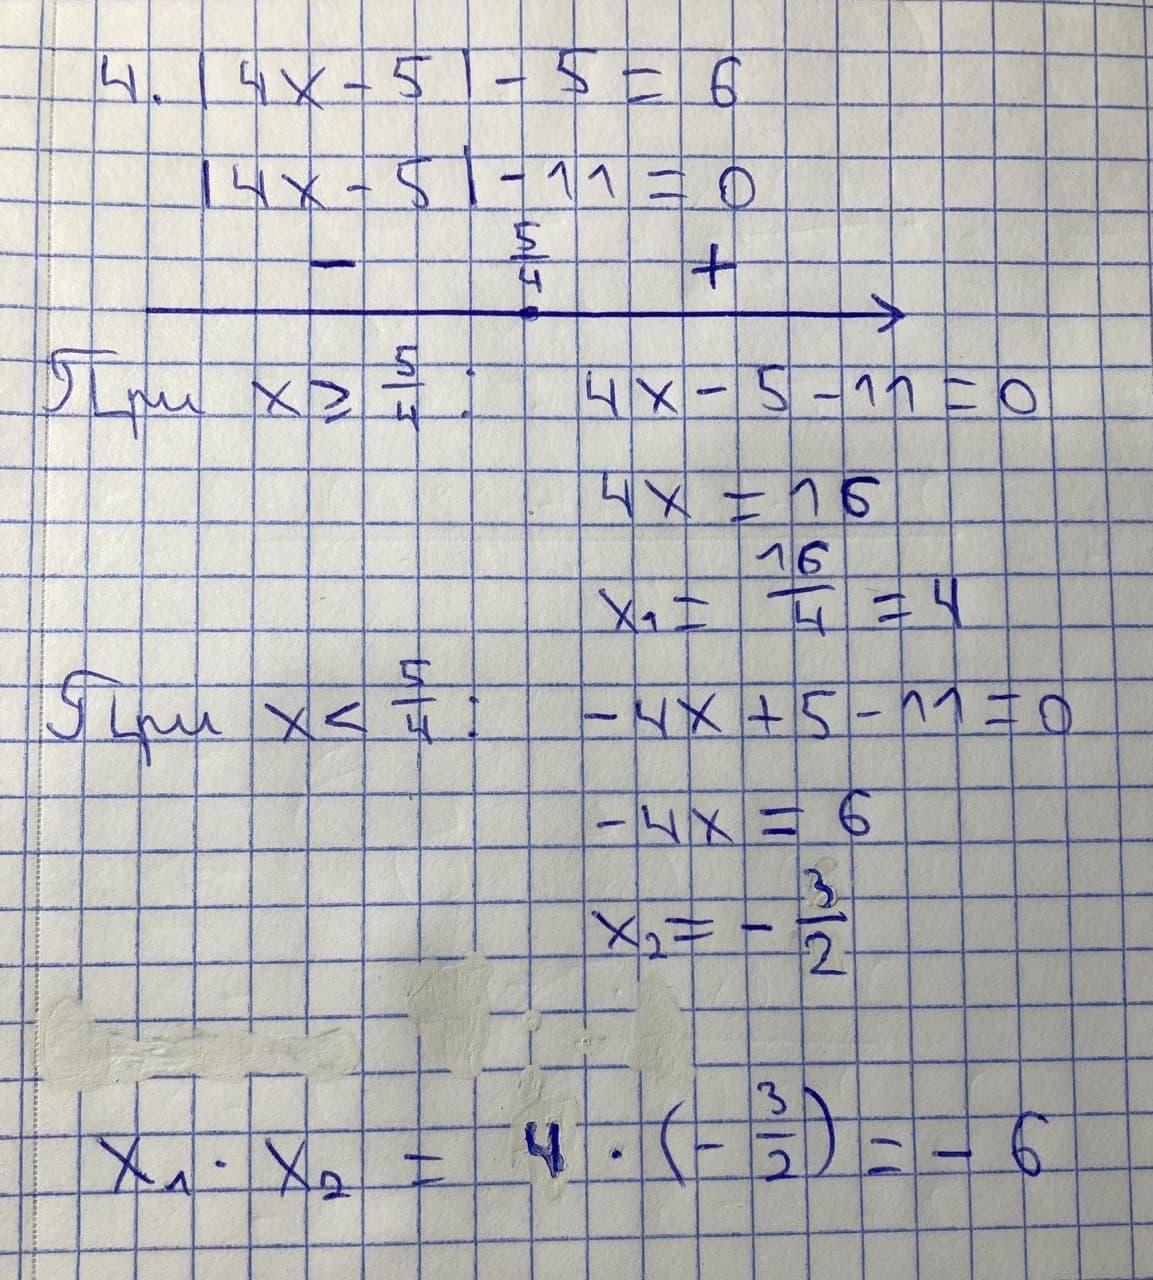 4. |4x - 5| - 5 = 6
|4x - 5| - 11 = 0
- 5/4 +
При x ≥ 5/4 : 4x - 5 - 11 = 0
4x = 16
x₁ = 16/4 = 4
При x < 5/4 : -4x + 5 - 11 = 0
-4x = 6
x₂ = - 3/2
x₁ · x₂ = 4 · (- 3/2) = - 6